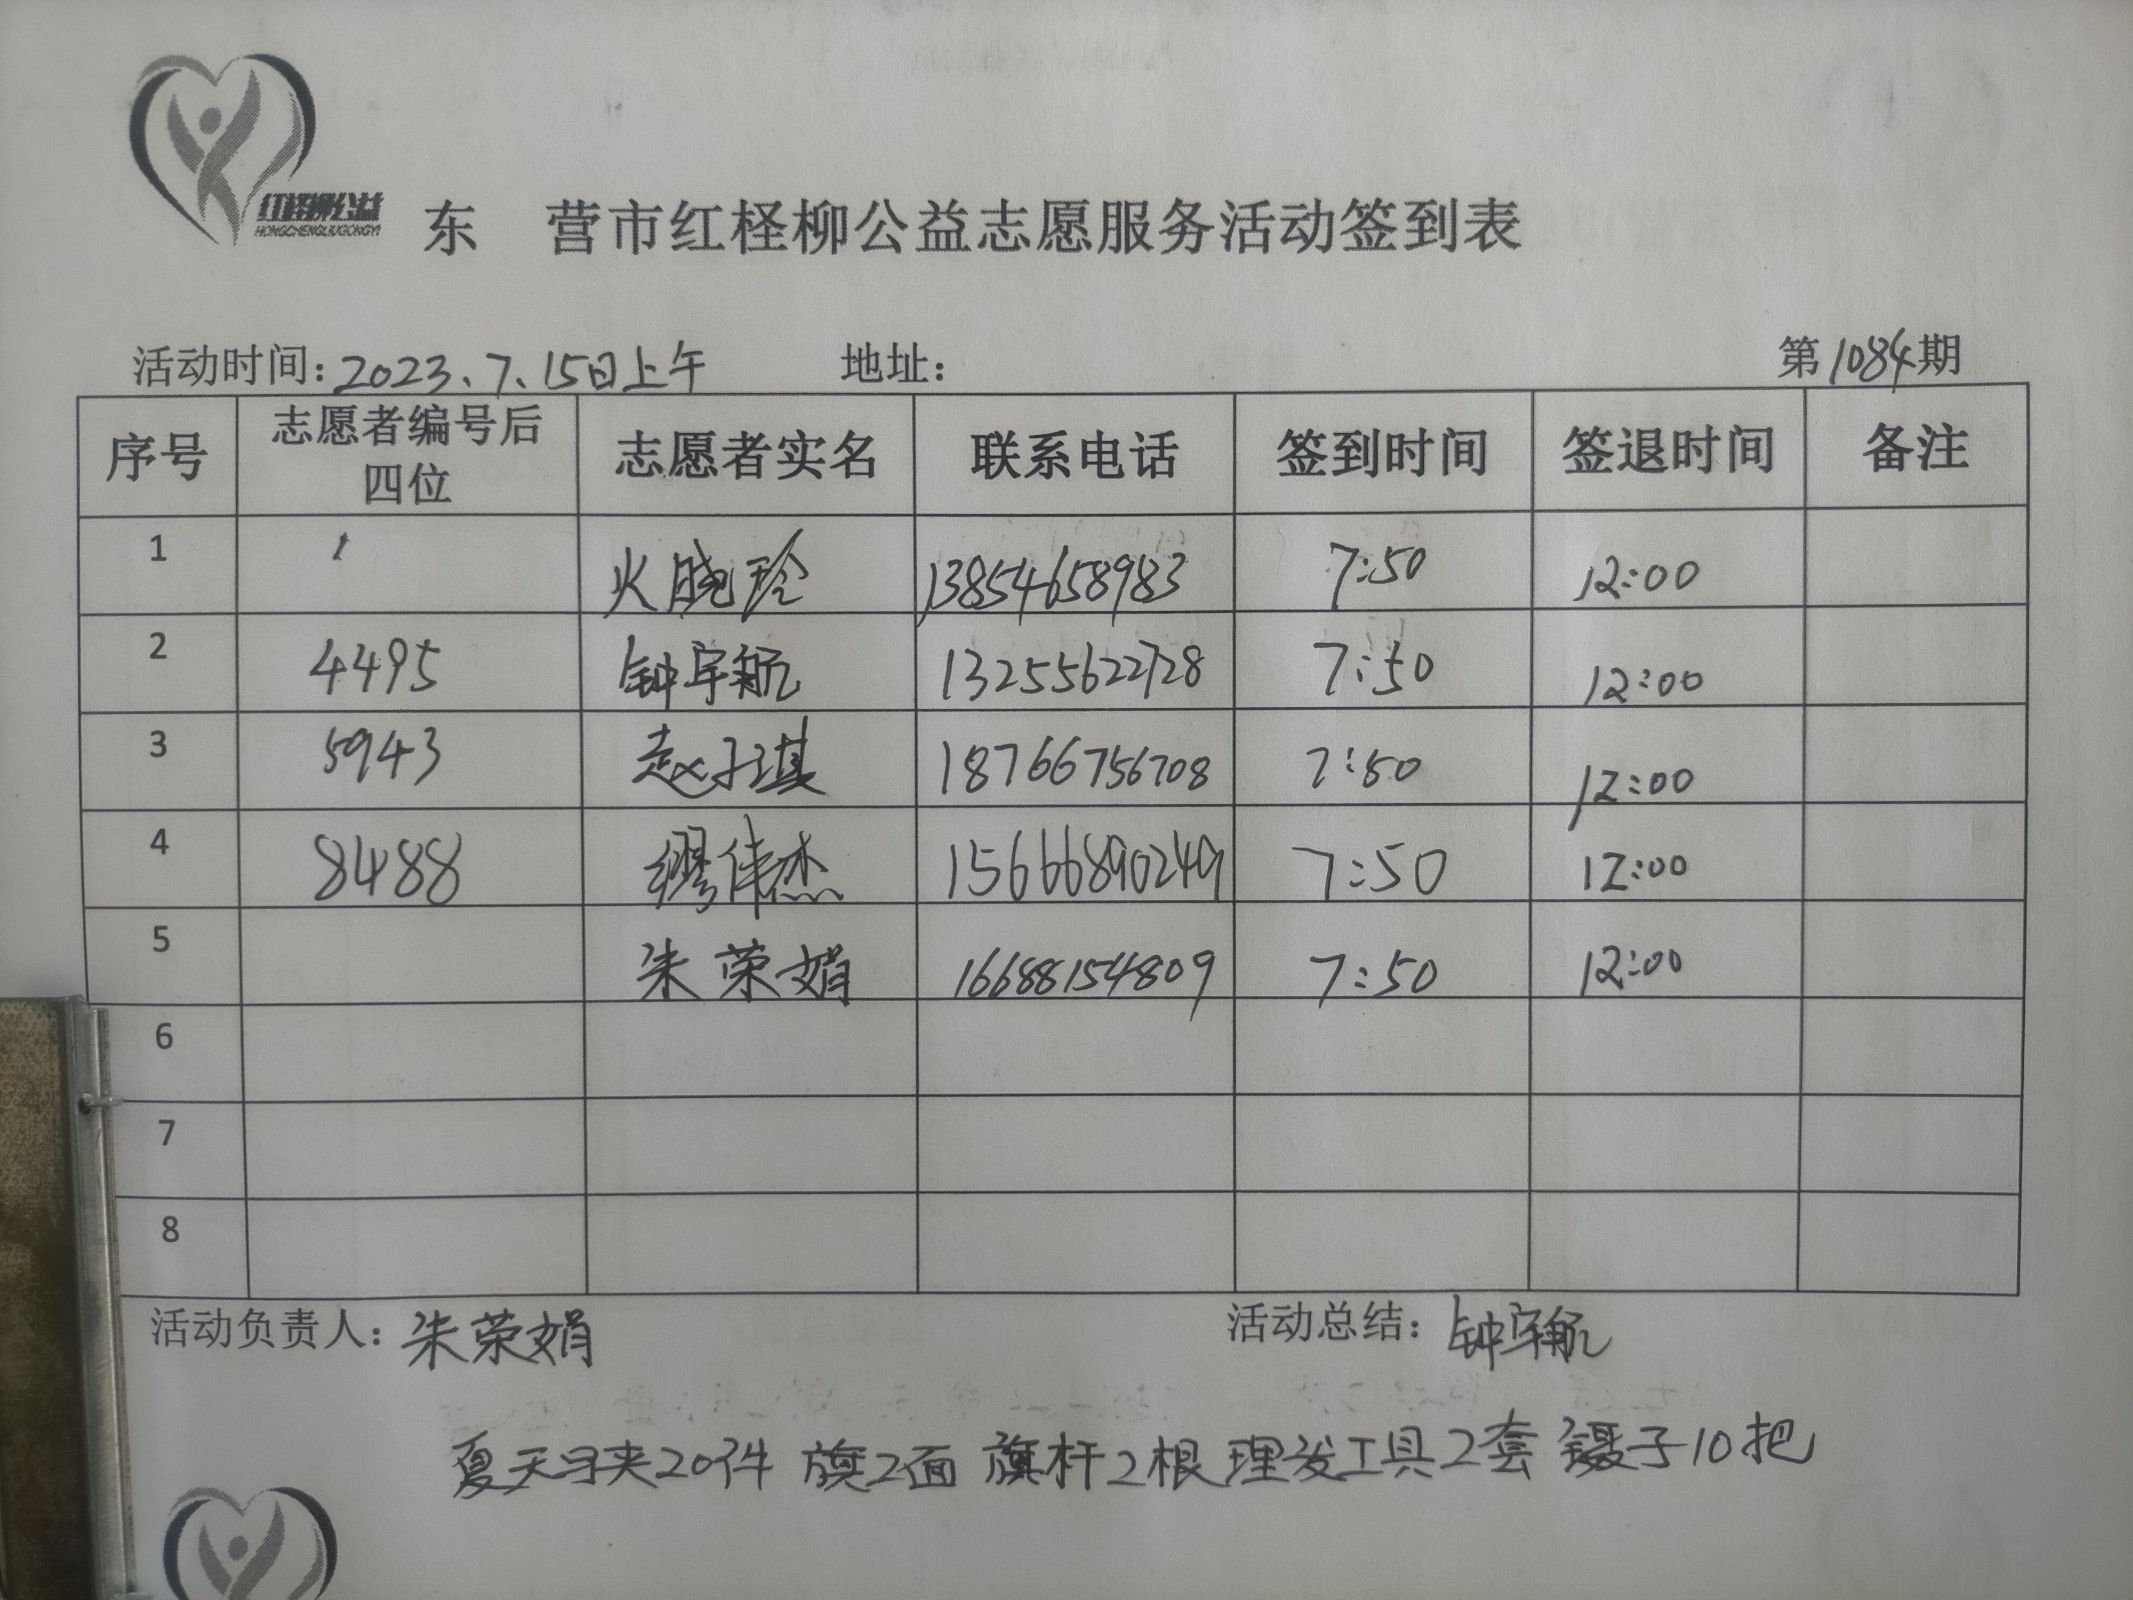 红柽柳公益
HONGCHENGLIUGONGYI
东 营市红柽柳公益志愿服务活动签到表
活动时间：2023、7、15日上午 地址： 第1084期
序号 志愿者编号后四位 志愿者实名 联系电话 签到时间 签退时间 备注
1 火晓玲 13854658983 7:50 12:00
2 4495 钟宇航 13255622728 7:50 12:00
3 5943 赵子琪 18766756708 7:50 12:00
4 8488 缪伟杰 15666890249 7:50 12:00
5 朱荣娟 16688154809 7:50 12:00
6
7
8
活动负责人：朱荣娟 活动总结：钟宇航
夏天马夹20件 旗2面 旗杆2根 理发工具2套 镊子10把